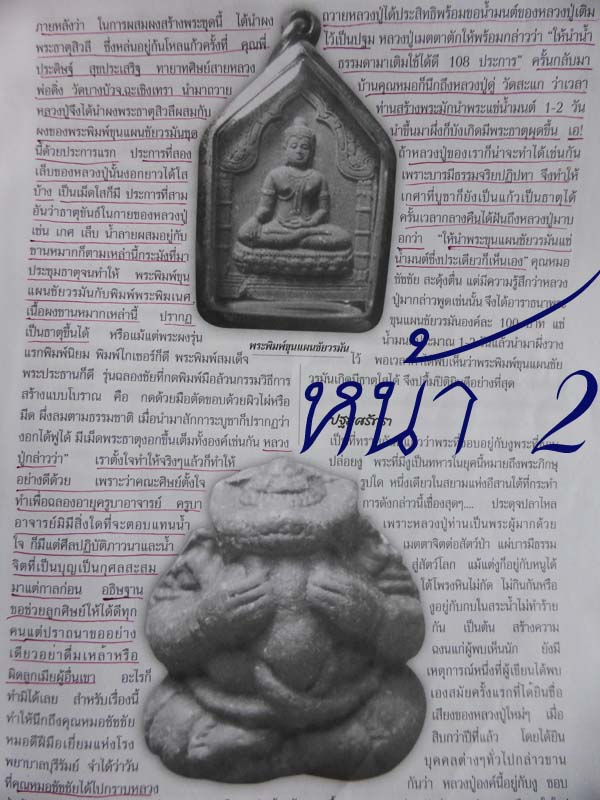 ภายหลังว่า ในการผสมผงสร้างพระชุดนี้ ได้นำผง
พระธาตุสิวลี ซึ่งหล่นอยู่ก้นโหลแก้วครั้งที่ คุณพี่
ประดิษฐ์ สุขประเสริฐ ทายาทศิษย์สายหลวง
พ่อดิ่ง วัดบางบัวจ.ฉะเชิงเทรา นำมาถวาย
หลวงปู่จึงได้นำผงพระธาตุสิวลีผสมกับ
ผงของพระพิมพ์ขุนแผนชัยวรมันชุด
นี้ด้วยประการแรก ประการที่สอง
เล็บของหลวงปู่นั้นงอกยาวได้ใส
บ้าง เป็นเม็ดใสก็มี ประการที่สาม
อันว่าธาตุขันธ์ในกายของหลวงปู่
เช่น เกศ เล็บ น้ำลายผสมอยู่กับ
ชานหมากก็ตามเหล่านี้กระมังที่มา
ประชุมธาตุจนทำให้ พระพิมพ์ขุน
แผนชัยวรมันกับพิมพ์พระพิฆเนศ
เนื้อผงชานหมากเหล่านี้ ปรากฏ
เป็นธาตุขึ้นได้ หรือแม้แต่พระผงรุ่น
แรกพิมพ์นิยม พิมพ์ไกเซอร์ก็ดี พระพิมพ์สมเด็จ
พระประธานก็ดี รุ่นฉลองชัยที่กดพิมพ์มือล้วนกรรมวิธีการ
สร้างแบบโบราณ คือ กดด้วยมือตัดขอบด้วยผิวไผ่หรือ
มีด ผึ่งลมตามธรรมชาติ เมื่อนำมาสักการะบูชาก็ปรากฏว่า
งอกได้ฟูได้ มีเม็ดพระธาตุงอกขึ้นเต็มทั้งองค์เช่นกัน หลวง
ปู่กล่าวว่า" เราตั้งใจทำให้จริงๆแล้วก็ทำให้
อย่างดีด้วย เพราะว่าคณะศิษย์ตั้งใจ
ทำเพื่อฉลองอายุครูบาอาจารย์ ครูบา
อาจารย์มิมีสิ่งใดที่จะตอบแทนน้ำ
ใจ ก็มีแต่ศีลปฏิบัติภาวนาและน้ำ
จิตที่เป็นบุญเป็นกุศลสะสม
มาแต่กาลก่อน อธิษฐาน
ขอช่วยลูกศิษย์ให้ได้ดีทุก
คนแต่ปรารถนาขออย่าง
เดียวอย่าดื่มเหล้าหรือ
ผิดลูกเมียผู้อื่นเขา อะไรก็
ทำมิได้เลย สำหรับเรื่องนี้
ทำให้นึกถึงคุณหมอชัยชัย
หมอดีฝีมือเยี่ยมแห่งโรง
พยาบาลบุรีรัมย์ จำได้ว่าวัน
ที่คุณหมอชัยชัยได้ไปกราบหลวง
ถวายหลวงปู่ได้ประสิทธิพร้อมขอน้ำมนต์ของหลวงปู่เติม
ไว้เป็นปฐม หลวงปู่เมตตาตักให้พร้อมกล่าวว่า "ให้นำน้ำ
ธรรมดามาเติมใช้ได้ดี 108 ประการ" ครั้นกลับมา
บ้านคุณหมอก็นึกถึงหลวงปู่ดู่ วัดสะแก ว่าเวลา
ท่านสร้างพระมักนำพระแช่น้ำมนต์ 1-2 วัน
นำขึ้นมาผึ่งก็บังเกิดมีพระธาตุผุดขึ้น เอ!
ถ้าหลวงปู่ของเราก็น่าจะทำได้เช่นกัน
เพราะบารมีธรรมจริยปฏิปทา จึงทำให้
เกศาที่บูชาก็ยังเป็นแก้วเป็นธาตุได้
ครั้นเวลากลางคืนได้ฝันถึงหลวงปู่มาบ
อกว่า "ให้นำพระขุนแผนชัยวรมันแช่
น้ำมนต์ซึ่งประเดี๋ยวก็เห็นเอง" คุณหมอ
ชัยชัย สะดุ้งตื่น แต่มีความรู้สึกว่าหลวง
ปู่มากล่าวพูดเช่นนั้น จึงได้อาราธนาพระ
ขุนแผนชัยวรมันองค์ละ 100 บาท แช่
พระพิมพ์ขุนแผนชัยวรมัน
หน้า 2
เพราะหลวงปู่ท่านเป็นพระผู้มากด้วย
เมตตาจิตต่อสัตว์ป่า แผ่บารมีธรรม
สู่สัตว์โลก แม้แต่งูก็อยู่กับหนูได้
ใต้โพรงหินไม่กัด ไม่กินกันหรือ
งูอยู่กับกบในสระน้ำไม่ทำร้าย
กัน เป็นต้น สร้างความ
ฉงนแก่ผู้พบเห็นนัก ยังมี
เหตุการณ์หนึ่งที่ผู้เขียนได้พบ
เองสมัยครั้งแรกที่ได้ยินชื่อ
เสียงของหลวงปู่ใหม่ๆ เมื่อ
สิบกว่าปีที่แล้ว โดยได้ยิน
บุคคลต่างๆทั่วไปกล่าวขาน
กันว่า หลวงปู่องค์นี้อยู่กับงู ชอบ